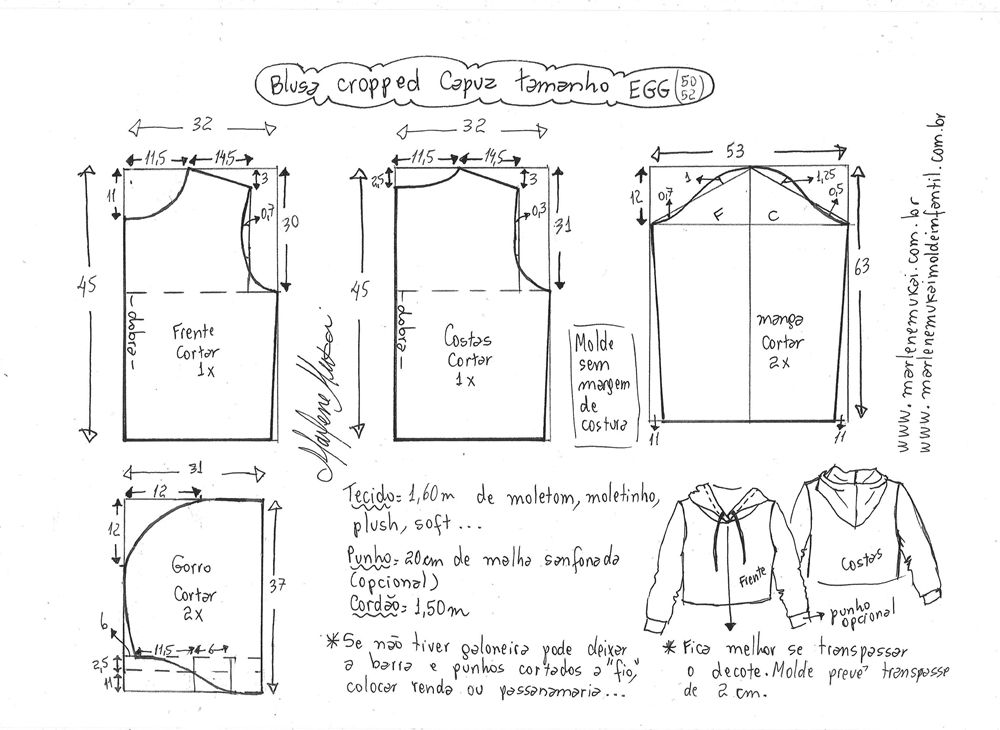 Blusa cropped Capuz tamanho EGG (50 52)
32
11,5
14,5
11
3
0,7
30
45
dobra
Frente
Cortar
1x
Marlene Mukai
32
11,5
14,5
2,5
3
0,3
31
45
dobra
Costas
Cortar
1x
Molde
sem
margem
de
costura
53
12
0,7
1
1,25
0,5
F
C
63
manga
Cortar
2x
11
11
www.marlenemukai.com.br
www.marlenemukaimoldeinfantil.com.br
31
12
12
37
Gorro
Cortar
2x
6
11,5
6
2,5
11
Tecido= 1,60m de moletom, moletinho,
plush, soft...
Punho= 20cm de malha sanfonada
(opcional)
Cordão= 1,50m
* Se não tiver galoneira pode deixar
a barra e punhos cortados a "fio,"
colocar renda ou passanamaria...
Frente
Costas
punho
opcional
* Fica melhor se transpassar
o decote. Molde prevê transpasse
de 2 cm.